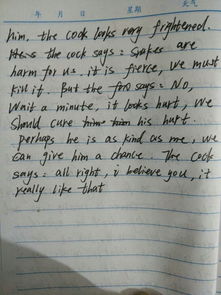 年 月 日 星期 天气
him, the cook looks very frightened.
the cock says: Snakes are
harm for us. it is fierce, we must
kill it. But the fox says: No,
Wait a minute, it looks hurt, we
should cure his hurt.
perhaps he is as kind as me, we
can give him a chance. The Cock
says: all right, i believe you, it
really like that